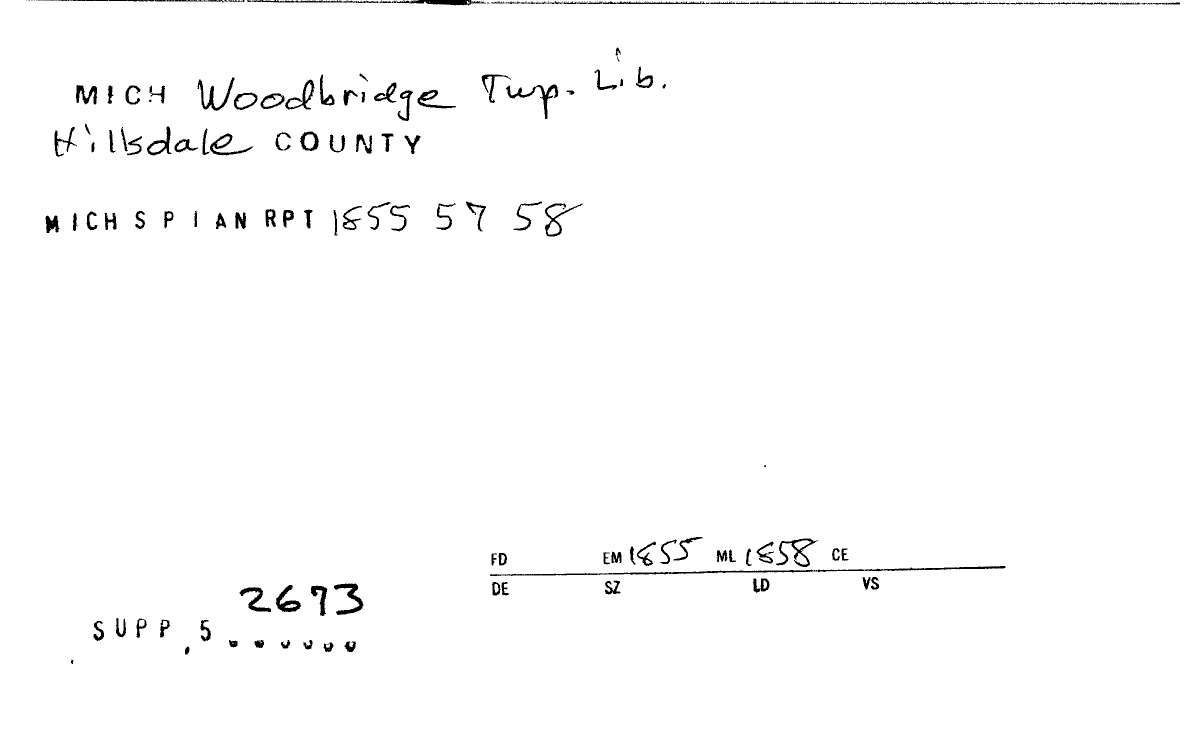 MICH Woodbridge Twp. Lib.
Hillsdale COUNTY
MICH S P I AN RPT 1855 57 58
FD EM 1855 ML 1858 CE
DE SZ LD VS
2673
SUPP, 5 ......